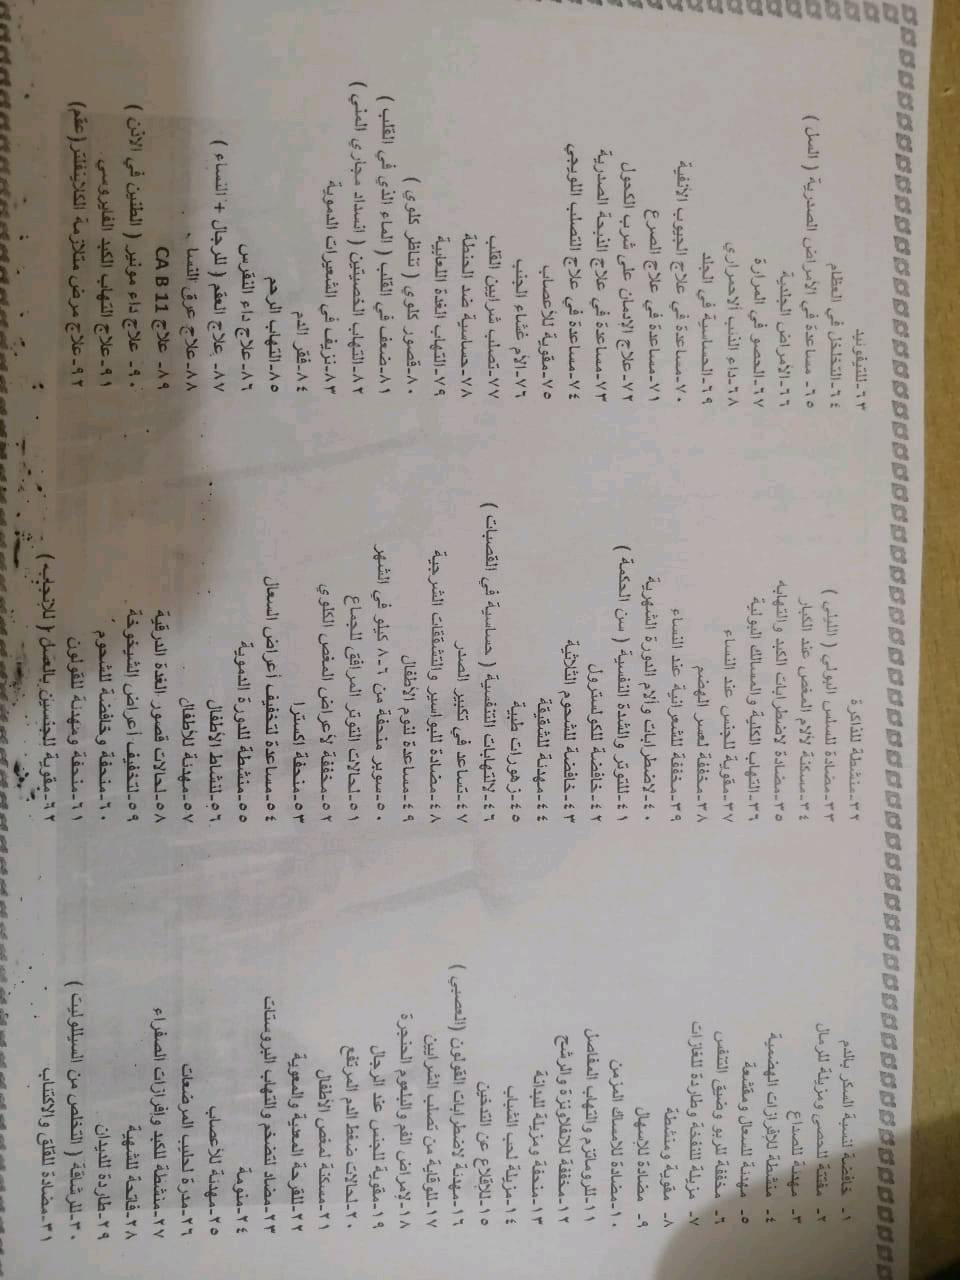 ١- خافضة لنسبة السكر بالدم
٢- مفتتة للحصى ومزيلة للرمال
٣- مهدئة للصداع
٤- منشطة للإفرازات الهضمية
٥- مهدئة للسعال ومقشعة
٦- مخففة للربو وضيق التنفس
٧- مزيلة للنفخة وطاردة للغازات
٨- مقوية ومنشطة
٩- مضادة للاسهال
١٠-مضادة للامساك المزمن
١١-للروماتزم والتهاب المفاصل
١٢-مخففة للانفلاونزة والرشح
١٣-منحفة ومزيلة للبدانة
١٤-مزيلة لحب الشباب
١٥-للإقلاع عن التدخين
١٦-مهدئة لاضطرابات القولون (العصبي )
١٧-للوقاية من تصلب الشرايين
١٨-لامراض الفم والبلعوم الحنجرة
١٩-مقوية للجنس عند الرجال
٢٠-لحالات ضغط الدم المرتفع
٢١-مسكنة لمغص الأطفال
٢٢-للقرحة المعدية والمعوية
٢٣-مضاد لتضخم والتهاب البروستات
٢٤-منومة
٢٥-مهدئة للأعصاب
٢٦-مدرة لحليب المرضعات
٢٧-منشطة للكبد وإفرازات الصفراء
٢٨-فاتحة للشهية
٢٩-طاردة للديدان
٣٠-للرشاقة ( التخلص من السيللوليت )
٣١-مضادة للقلق والاكتئاب
٣٢-منشطة للذاكرة
٣٣-مضادة للسلس البولي ( الليلي )
٣٤-مسكنة لآلام المغص عند الكبار
٣٥-مضادة لاضطرابات الكبد والتهابه
٣٦-التهاب الكلية والمسالك البولية
٣٧-مقوية للجنس عند النساء
٣٨-مخففة لعسر الهضم
٣٩-مخففة للشعرانية عند النساء
٤٠-لاضطرابات وآلام الدورة الشهرية
٤١-للتوتر والشدة النفسية ( سن الحكمة )
٤٢-خافضة للكولسترول
٤٣-خافضة للشحوم الثلاثية
٤٤-مهدئة للشقيقة
٤٥-زهورات طبية
٤٦-لالتهابات التنفسية ( حساسية في القصبات )
٤٧-تساعد في تكبير الصدر
٤٨-مضادة للبواسير والتشققات الشرجية
٤٩-مساعدة لنوم الأطفال
٥٠-سوبر منحفة من ٦-٨ كيلو في الشهر
٥١-لحالات التوتر المرافق للجماع
٥٢-مخففة لأعراض المغص الكلوي
٥٣-منحفة إكسترا
٥٤-مساعدة لتخفيف أعراض السعال
٥٥-منشطة للدورة الدموية
٥٦-لنشاط الأطفال
٥٧-مهدئة للأطفال
٥٨-لحالات قصور الغدة الدرقية
٥٩-لتخفيف أعراض الشيخوخة
٦٠-منحفة وخافضة للشحوم
٦١-منحفة ومهدئة للقولون
٦٢-مقوية للجنسين بالعسل ( للإنجاب )
٦٣-للتيفوئيد
٦٤-التخلخل في العظام
٦٥- مساعدة في الأمراض الصدرية ( السل )
٦٦-الأمراض الجلدية
٦٧-الحصو في المرارة
٦٨-داء الذئب الاحمراري
٦٩-الحساسية في الجلد
٧٠-مساعدة في علاج الجيوب الأنفية
٧١-مساعدة في علاج الصرع
٧٢-علاج الادمان على شرب الكحول
٧٣-مساعدة في علاج الذبحة الصدرية
٧٤-مساعدة في علاج التصلب اللويحي
٧٥-مقوية للأعصاب
٧٦-الأم غشاء الجنب
٧٧-تصلب شرايين القلب
٧٨-حساسية ضد الحنطة
٧٩-التهاب الغدة اللعابية
٨٠-قصور كلوي ( تناظر كلوي )
٨١-ضعف في القلب ( الماء الذي في القلب )
٨٢-التهاب الخصيتين ( انسداد مجاري المني )
٨٣-نزيف في الشعيرات الدموية
٨٤-فقر الدم
٨٥-التهاب الرحم
٨٦-علاج داء النقرس
٨٧- علاج العقم ( للرجال + النساء )
٨٨-علاج عرق النسا
٨٩- علاج CA B 11
٩٠-علاج داء مونير ( الطنين في الاذن )
٩١-علاج التهاب الكبد الفايروسي
٩٢-علاج مرض متلازمة الكلاينفلتر (عقم)